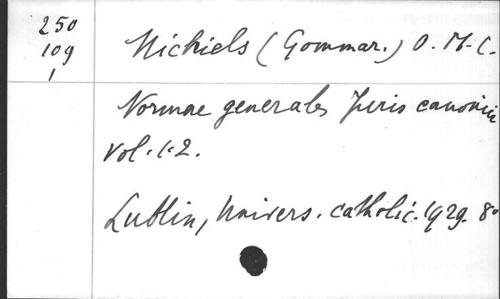 250
109
1
Michiels (Gommar.) O. M. C.
Normae generales Juris canonici
Vol. 1-2.
Lublin, Univers. catholic. 1929. 8°